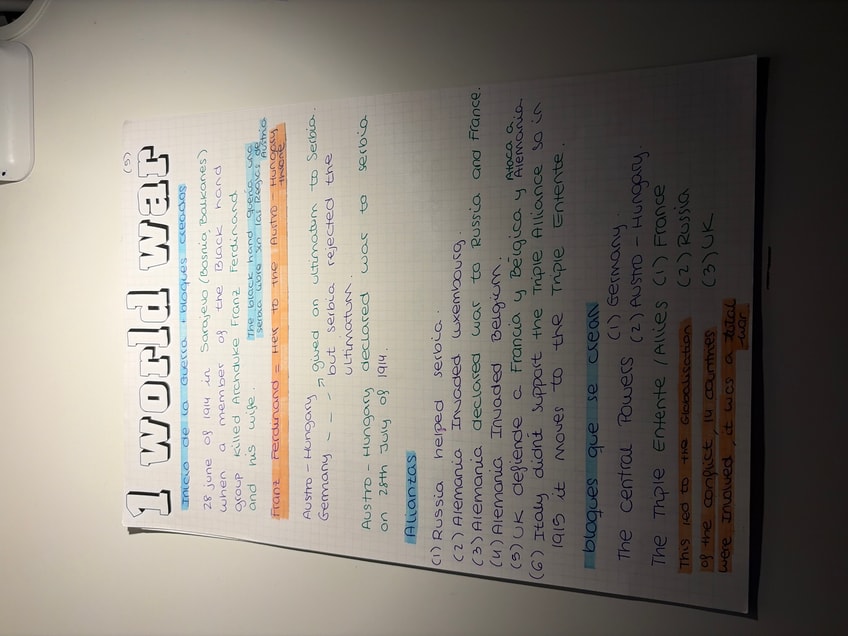 (5)
1 world war
Inicio de la Guerra + bloques creados
28 june of 1914 in Sarajevo (Bosnia, Balkanes)
when a member of the Black hand
group killed Archduke Franz Ferdinand
and his wife.
The black hand quería una
serbia libre sin las Reglas de
Austria
Franz Ferdinand = Heir to the Austro-Hungary
throne
Austro-Hungary
Germany - - -> gived on ultimatum to Serbia.
but serbia rejected the
ultimatum.
Austro-Hungary declared war to serbia
on 28th July of 1914.
Alianzas
(1) Russia helped serbia.
(2) Alemania Invaded Luxembourg.
(3) Alemania declared war to Russia and France.
(4) Alemania Invaded Belgium.
(5) UK defiende a Francia y Belgica y Ataca a
Alemania
(6) Italy didnt support the Triple Aliance so in
1915 it moves to the Triple Entente.
bloques que se crean
The central Powers (1) Germany.
(2) Austro-Hungary.
The Triple Entente /Allies (1) France
(2) Russia
(3) UK
This led to the Globalisation
of the conflict, 14 countries
were Involved, it was a total
war